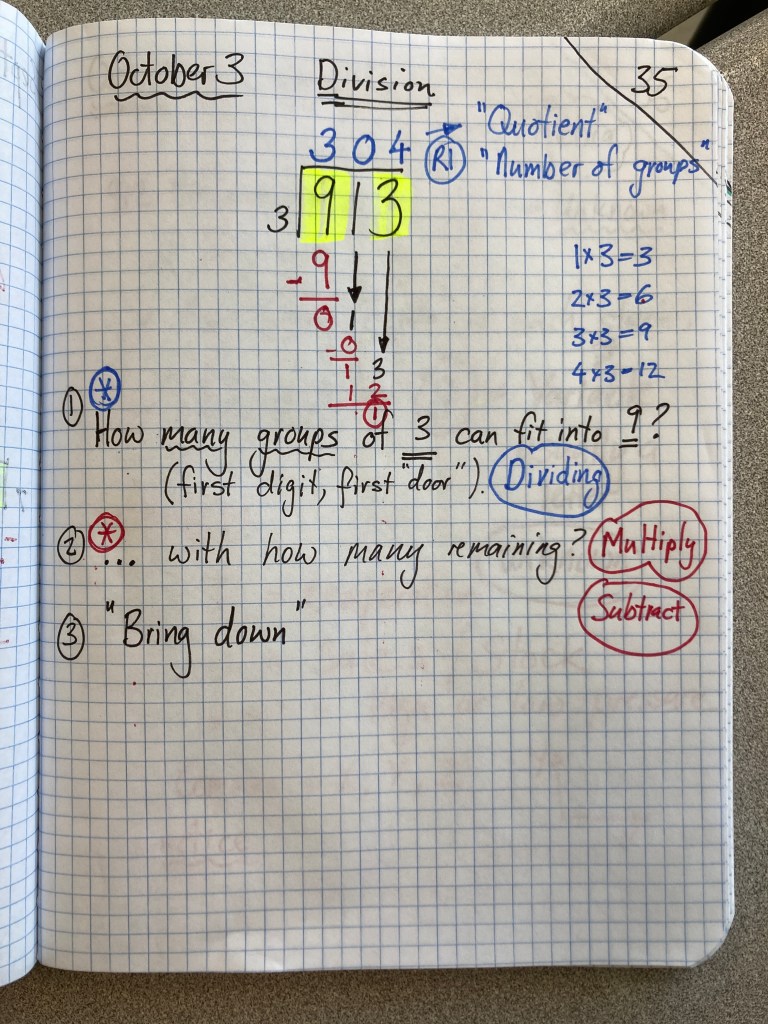 October 3 Division 35
3 0 4 R1 → "Quotient"
"Number of groups"
3 913
- 9
0 1
- 0
1 3
1 2
1
1×3=3
2×3=6
3×3=9
4×3=12
① * How many groups of 3 can fit into 9?
(first digit, first "door"). Dividing
② * ... with how many remaining? Multiply
Subtract
③ "Bring down"